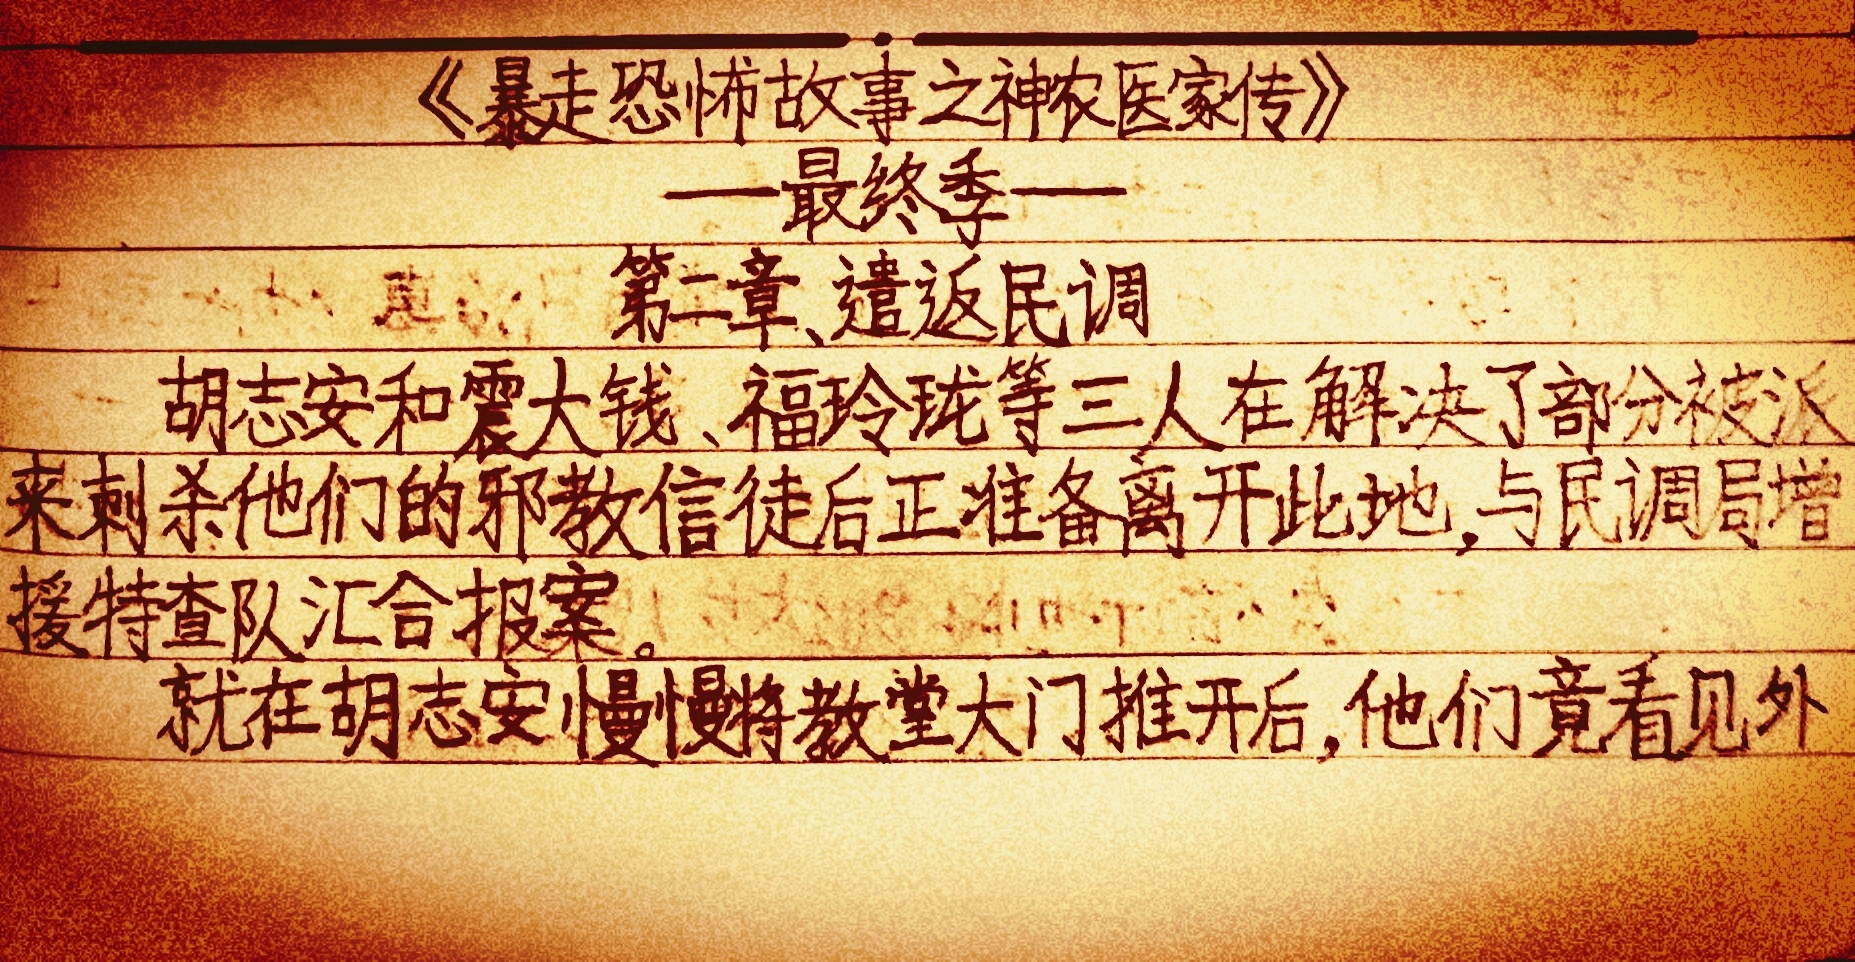 《暴走恐怖故事之神农医家传》
——最终季——
第二章、遣返民调
胡志安和震大钱、福玲珑等三人在解决了部分被派
来刺杀他们的邪教信徒后正准备离开此地,与民调局增
援特查队汇合报案。
就在胡志安慢慢将教堂大门推开后,他们竟看见外